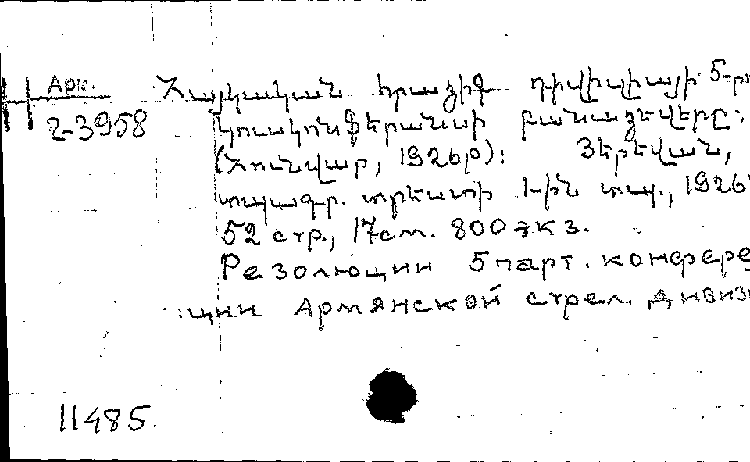 Арк.
2-3958
Հայկական հրաձիգ դիվիզիայի 5-րդ
կուսկոնֆերանսի բանաձևերը:
(Հունվար, 1926թ): Յերեվան,
տպագր. տրեստի 1-ին տպ., 1926
52 стр., 17см. 800 экз.
Резолюции 5 парт. конфере
ции Армянской стрел. дивиз
11485